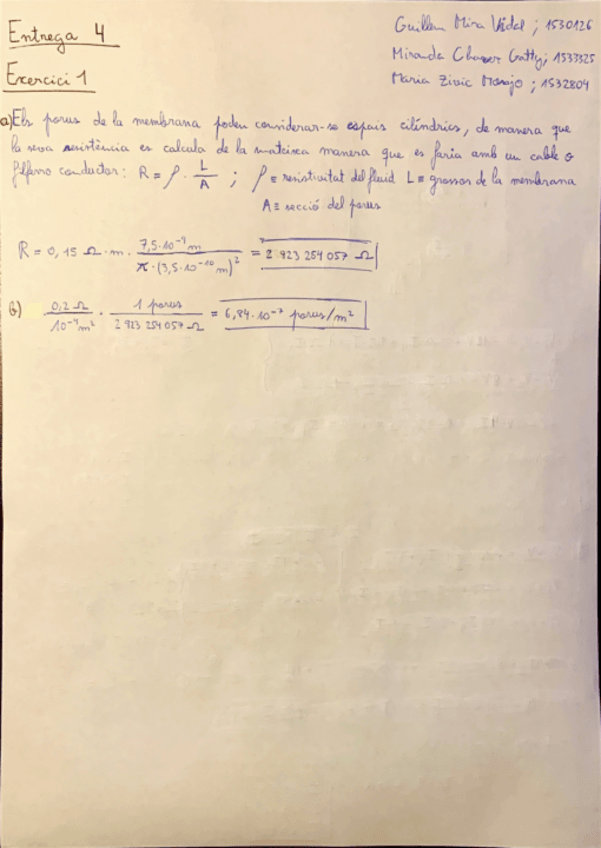 Entrega 4
Guillem Mira Vidal ; 1530126
Miranda Chaver Gatty; 1533325
Maria Zivic Monajo ; 1532804
Exercici 1
a) Els porus de la membrana poden considerar-se espais cilíndrics, de manera que
la seva resistència es calcula de la mateixa manera que es faria amb un cable o
filferro conductor: R = ρ · L/A ; ρ ≡ resistivitat del fluid L ≡ grossor de la membrana
A ≡ secció del porus
R = 0,15 Ω · m · 7,5·10⁻⁹ m / π·(3,5·10⁻¹⁰ m)² = 2 923 254 057 Ω
b) 0,2 Ω / 10⁻⁴ m² · 1 porus / 2 923 254 057 Ω = 6,84·10⁻⁷ porus/m²